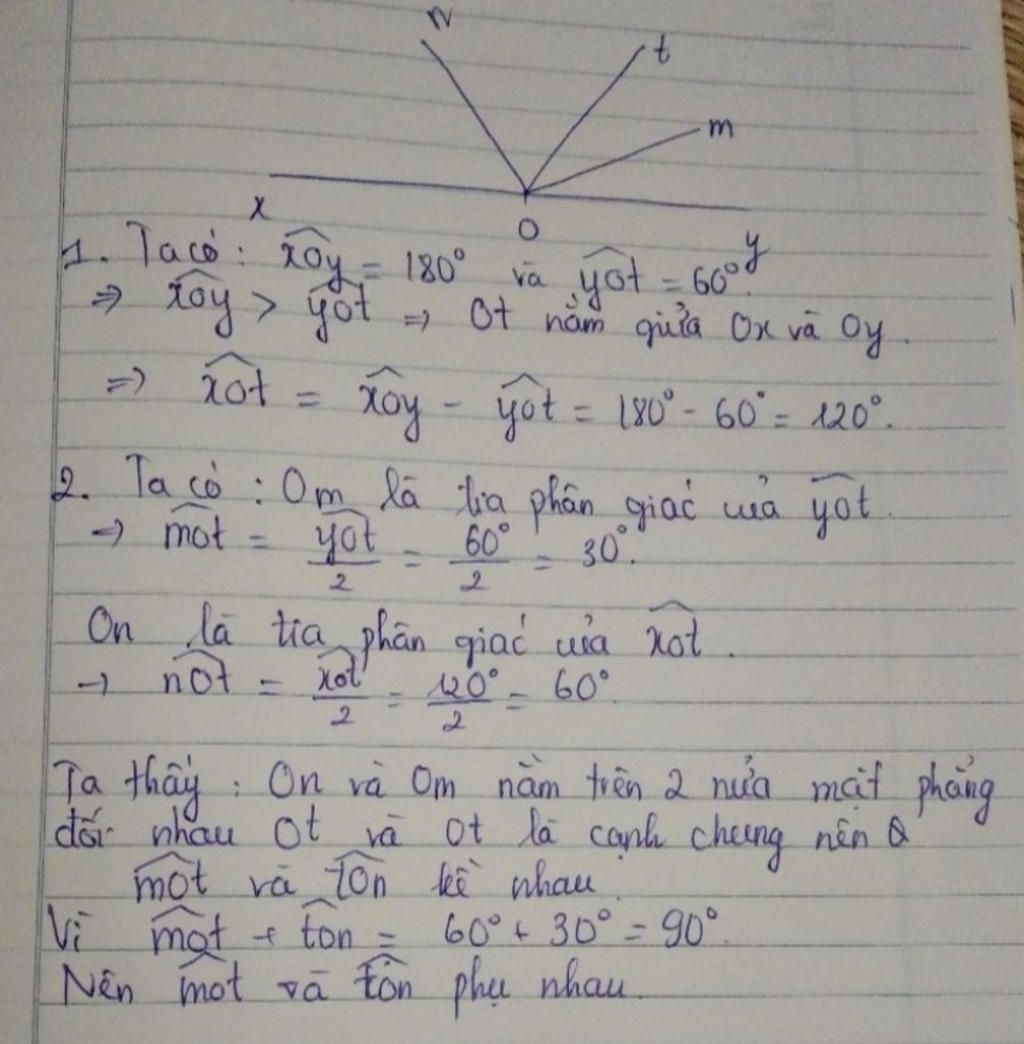 n
t
m
x
O
y
1. Ta có: x̂Oy = 180° và ŷOt = 60°.
⇒ x̂Oy > ŷOt ⇒ Ot nằm giữa Ox và Oy.
⇒ x̂Ot = x̂Oy - ŷOt = 180° - 60° = 120°.
2. Ta có: Om là tia phân giác của ŷOt.
→ m̂Ot = ŷOt/2 = 60°/2 = 30°.
On là tia phân giác của x̂Ot.
→ n̂Ot = x̂Ot/2 = 120°/2 = 60°.
Ta thấy: On và Om nằm trên 2 nửa mặt phẳng
đối nhau Ot và Ot là cạnh chung nên
m̂Ot và t̂On kề nhau.
Vì m̂Ot + t̂On = 60° + 30° = 90°.
Nên m̂Ot và t̂On phụ nhau.